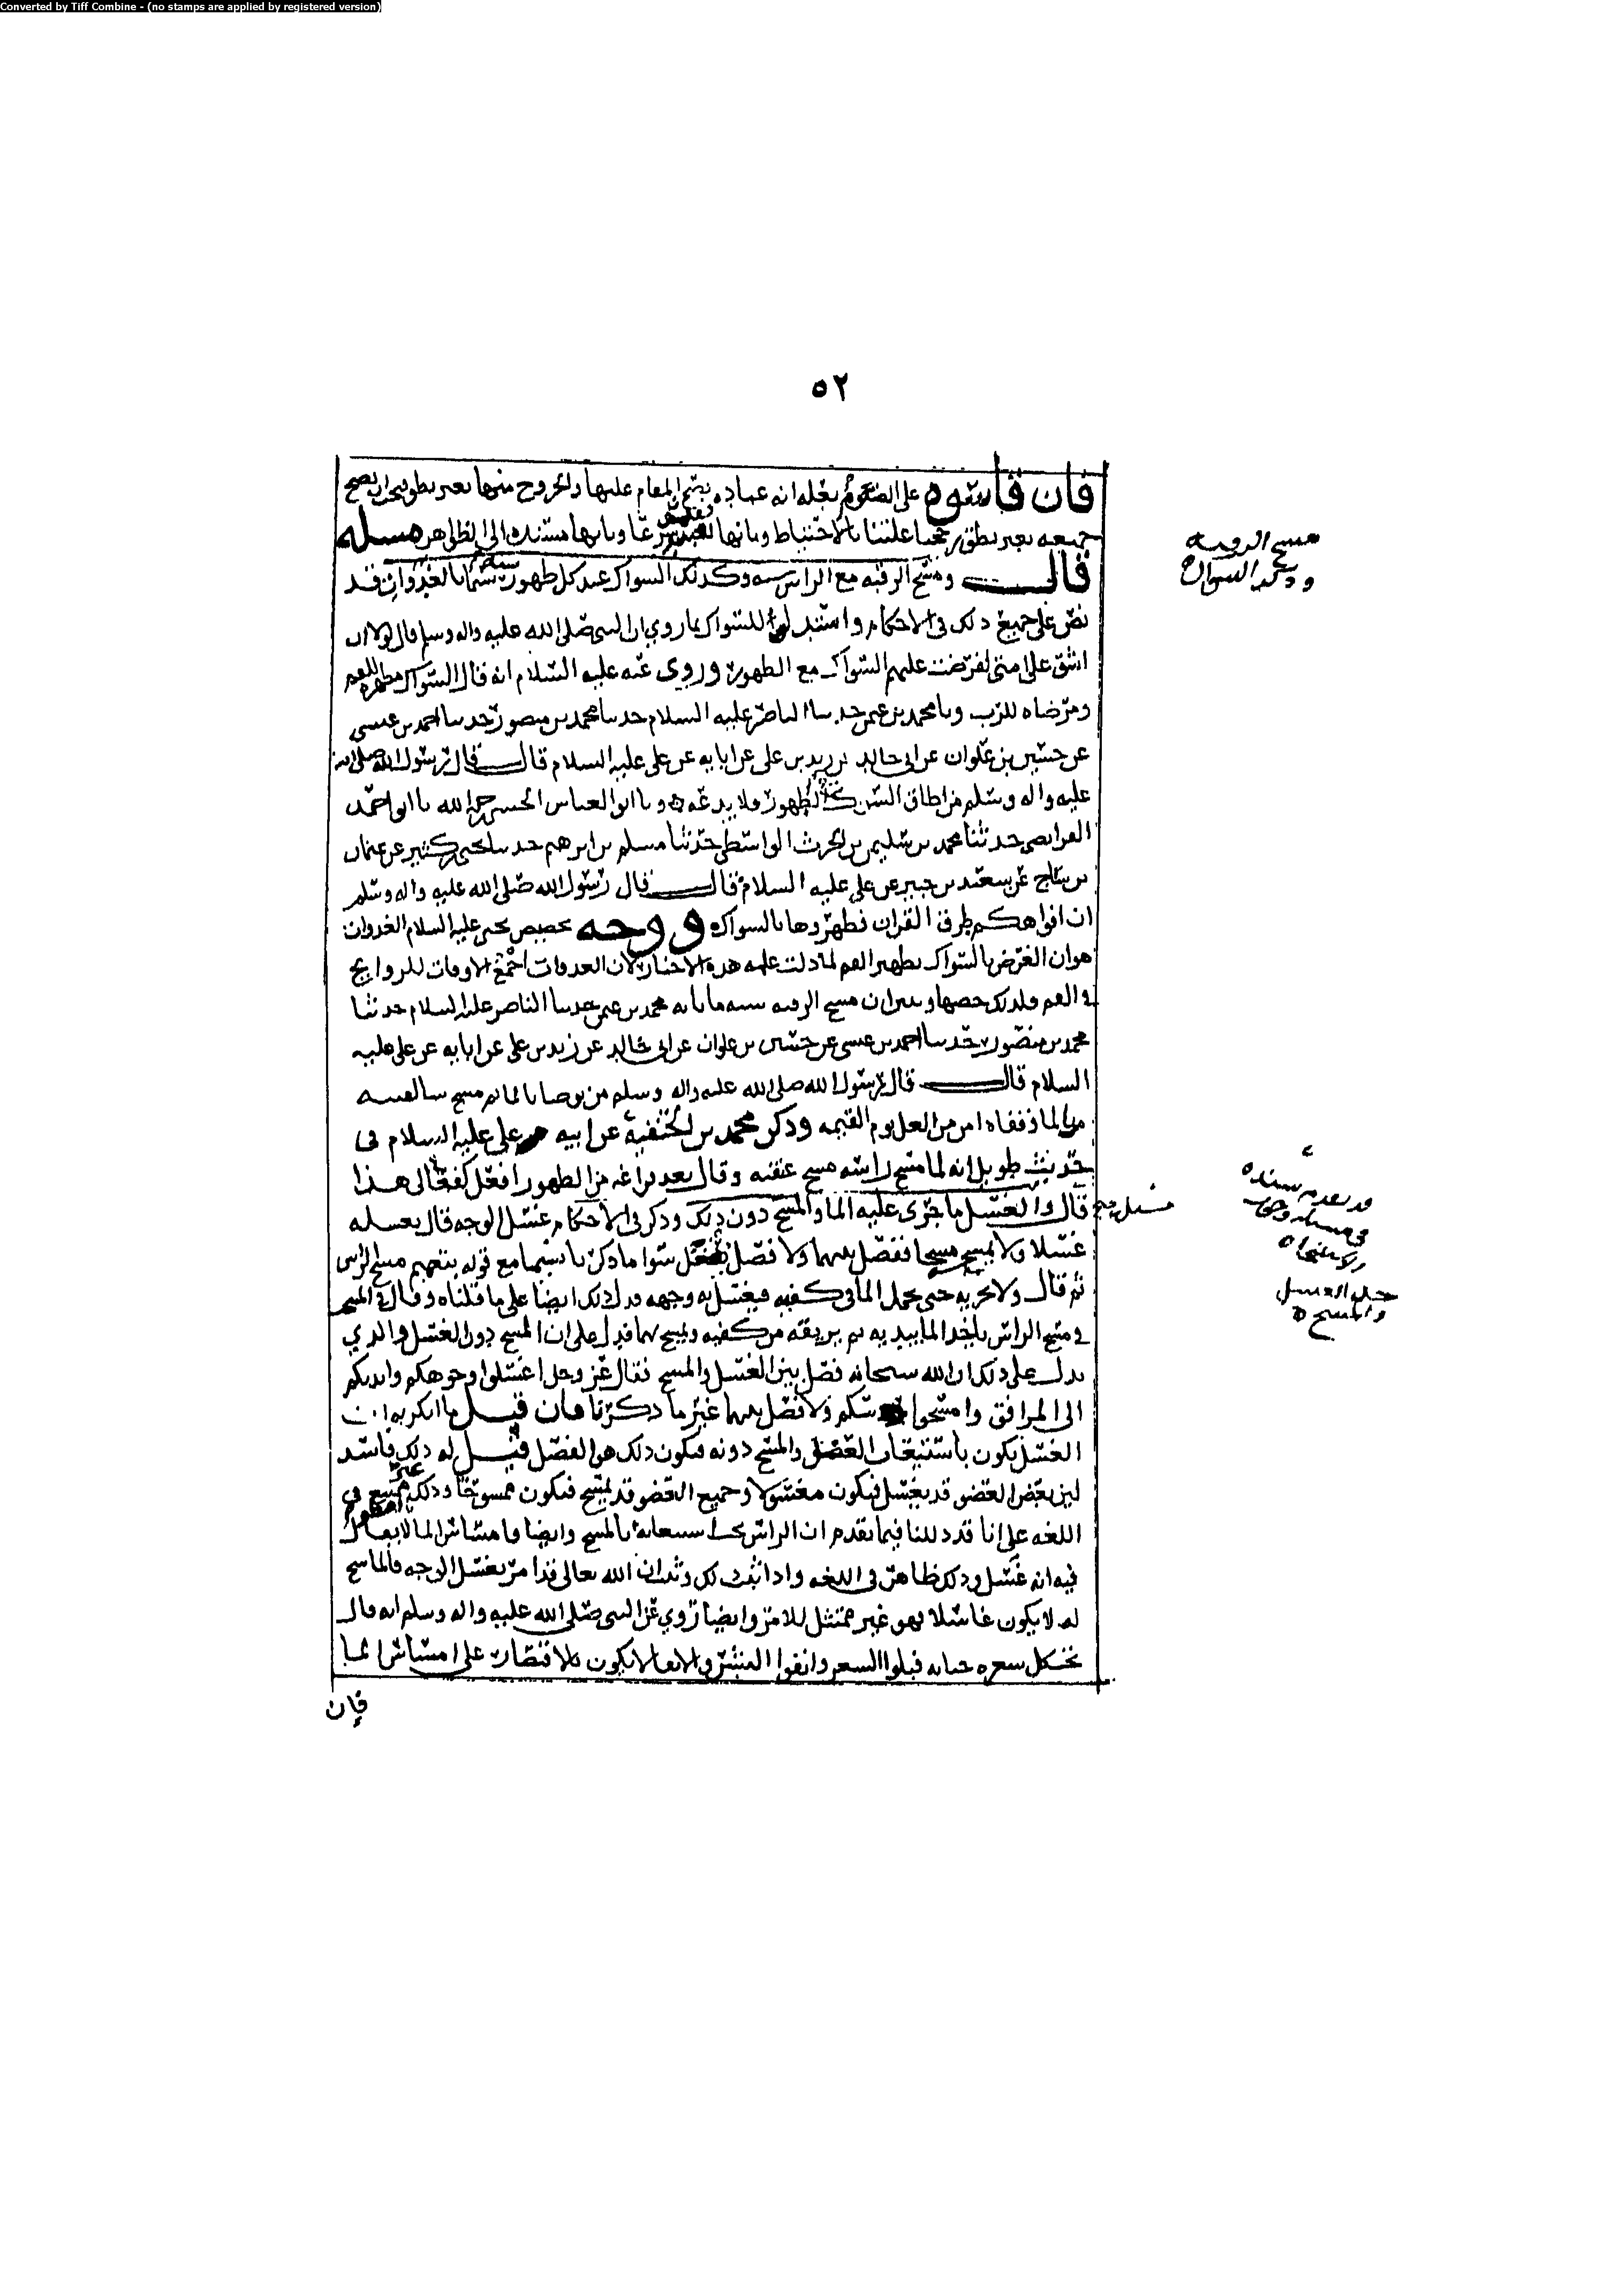 Converted by Tiff Combine - (no stamps are applied by registered version)
٥٢
فان قاسوه على الصوم بعله انه عباده يصح المقام عليها والخروج منها بغير نطق يجب ان يصح
جميعه بغير نطق رجحنا علتنا بالاحتياط وبانها شرعا وبانها مستنده الى الظاهر مسله
قال ومسح الرقبه مع الراس سنه وكذلك السواك عند كل طهور سيما بالغدوات قد
نص على جميع ذلك في الاحكام واستدل للسواك بما روي ان النبي صلى الله عليه واله وسلم قال لولا ان
اشق على امتي لفرضت عليهم السواك مع الطهور وروى عنه عليه السلام انه قال السواك مطهره للفم
ومرضاه للرب وبا محمد بن عثمن حدثنا الناصر عليه السلام حدثنا محمد بن منصور حدثنا احمد بن عيسى
عن حسين بن علوان عن ابي خالد عن زيد بن علي عن ابايه عن علي عليه السلام قال قال رسول الله صلى الله
عليه واله وسلم من اطاق السواك مع الطهور فلا يدعه وبا ابو العباس الحسني رحمه الله با ابو احمد
الفرايضي حدثنا محمد بن سليمن بن الحرث الواسطي حدثنا مسلم بن ابرهيم حدثنا بحر بن كثير عن عثمان
بن ساج عن سعيد بن جبير عن علي عليه السلام قال قال رسول الله صلى الله عليه واله وسلم
ان افواهكم طرق القران فطهروها بالسواك ووجه تخصيص يحيى عليه السلام الغدوات
هو ان الغرض بالسواك تطهير الفم لما دلت عليه هذه الاخبار ولان الغدوات اجمع الاوقات للروايح
في الفم فلذلك خصها وبين ان مسح الرقبه سنه ما بابه محمد بن عثمن حدثنا الناصر عليه السلام حدثنا
محمد بن منصور حدثنا احمد بن عيسى عن حسين بن علوان عن ابي خالد عن زيد بن علي عن ابايه عن علي عليه
السلام قال قال رسول الله صلى الله عليه واله وسلم من توضا بالما ثم مسح سالفيه
من الما وقفاه امن من الغل يوم القيمه وذكر محمد بن الحنفية عن ابيه علي عليه السلام في
حديث طويل انه لما مسح راسه مسح عنقه وقال بعد فراغه من الطهور افعل كفعالي هذا
قال والغسل ما جرى عليه الما والمسح دون ذلك وذكر في الاحكام غسل الوجه قال يغسله
غسلا ولا يمسح مسحا ففصل بينهما ولا فصل سوا ما ذكرنا سيما مع قوله بتعميم مسح الراس
ثم قال ولا يجزيه حتى يحمل الما في كفيه فيغسل به وجهه فدل ذلك ايضا على ما قلناه وقال في
في مسح الراس ياخذ الما بيديه ثم يريقه من كفيه ويمسح بهما فدل على ان المسح دون الغسل والذي
يدل على ذلك ان الله سبحانه فصل بين الغسل والمسح فقال عز وجل اغسلوا وجوهكم وايديكم
الى المرافق وامسحوا برؤسكم ولا فصل بينهما غير ما ذكرنا فان قيل ما انكرتم ان
الغسل يكون باستيعاب العضو والمسح دونه فيكون ذلك هو الفصل قيل له ذلك فاسد
لان بعض العضو قد يغسل فيكون مغسولا وجميع العضو قد يمسح فيكون ممسوحا وذلك غير ممتنع في
اللغه على انا قد دللنا فيما تقدم ان الراس يجب استيعابه بالمسح وايضا فامساس الما لا يقال
فيه انه غسل وذلك ظاهر في اللغه واذا ثبت ذلك وثبت ان الله تعالى قد امر بغسل الوجه فالماسح
له لا يكون غاسلا فهو غير ممتثل للامر وايضا روي عن النبي صلى الله عليه واله وسلم انه قال
تحت كل شعره جنابه فبلوا الشعر وانقوا البشر والانقا لا يكون بالاقتصار على امساس الما
فان
مسح الرقبه
وذكر السواك
قد تقدم سنده
في مسله وجوب
الاستنجاه
حد الغسل
والمسح